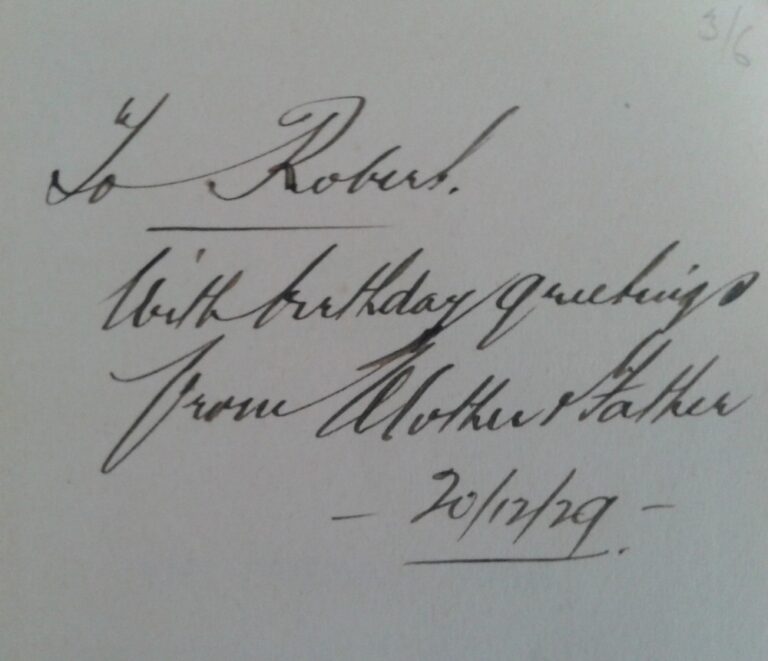 3/6
To Robert.
With birthday greetings
from Mother & Father
- 20/12/29 -